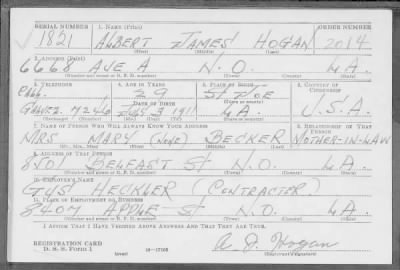 SERIAL NUMBER 1. NAME (Print) ORDER NUMBER
1821 ALBERT JAMES HOGAN 2014
(First) (Middle) (Last)
2. ADDRESS (Print)
6668 AVE A N.O. LA.
(Number and street or R. F. D. number) (Town) (County) (State)
3. TELEPHONE 4. AGE IN YEARS 5. PLACE OF BIRTH 6. COUNTRY OF CITIZENSHIP
29
DATE OF BIRTH
7246 3 1911 LA. U.S.A.
(Mo.) (Day) (Yr.) (State or country)
7. NAME OF PERSON WHO WILL ALWAYS KNOW YOUR ADDRESS 8. RELATIONSHIP OF THAT PERSON
MRS MARY (NONE) BECKER MOTHER-IN-LAW
(Mr., Mrs., Miss) (First) (Middle) (Last)
9. ADDRESS OF THAT PERSON
8701 BELFAST ST N.O. LA.
(Number and street or R. F. D. number) (Town) (County) (State)
10. EMPLOYER'S NAME
GUS HECKLER (CONTRACTER)
11. PLACE OF EMPLOYMENT OR BUSINESS
8407 APPLE ST N.O. LA.
(Number and street or R. F. D. number) (Town) (County) (State)
I AFFIRM THAT I HAVE VERIFIED ABOVE ANSWERS AND THAT THEY ARE TRUE.
REGISTRATION CARD
D. S. S. Form 1 (over) 16—17105 A. J. Hogan
(Registrant's signature)